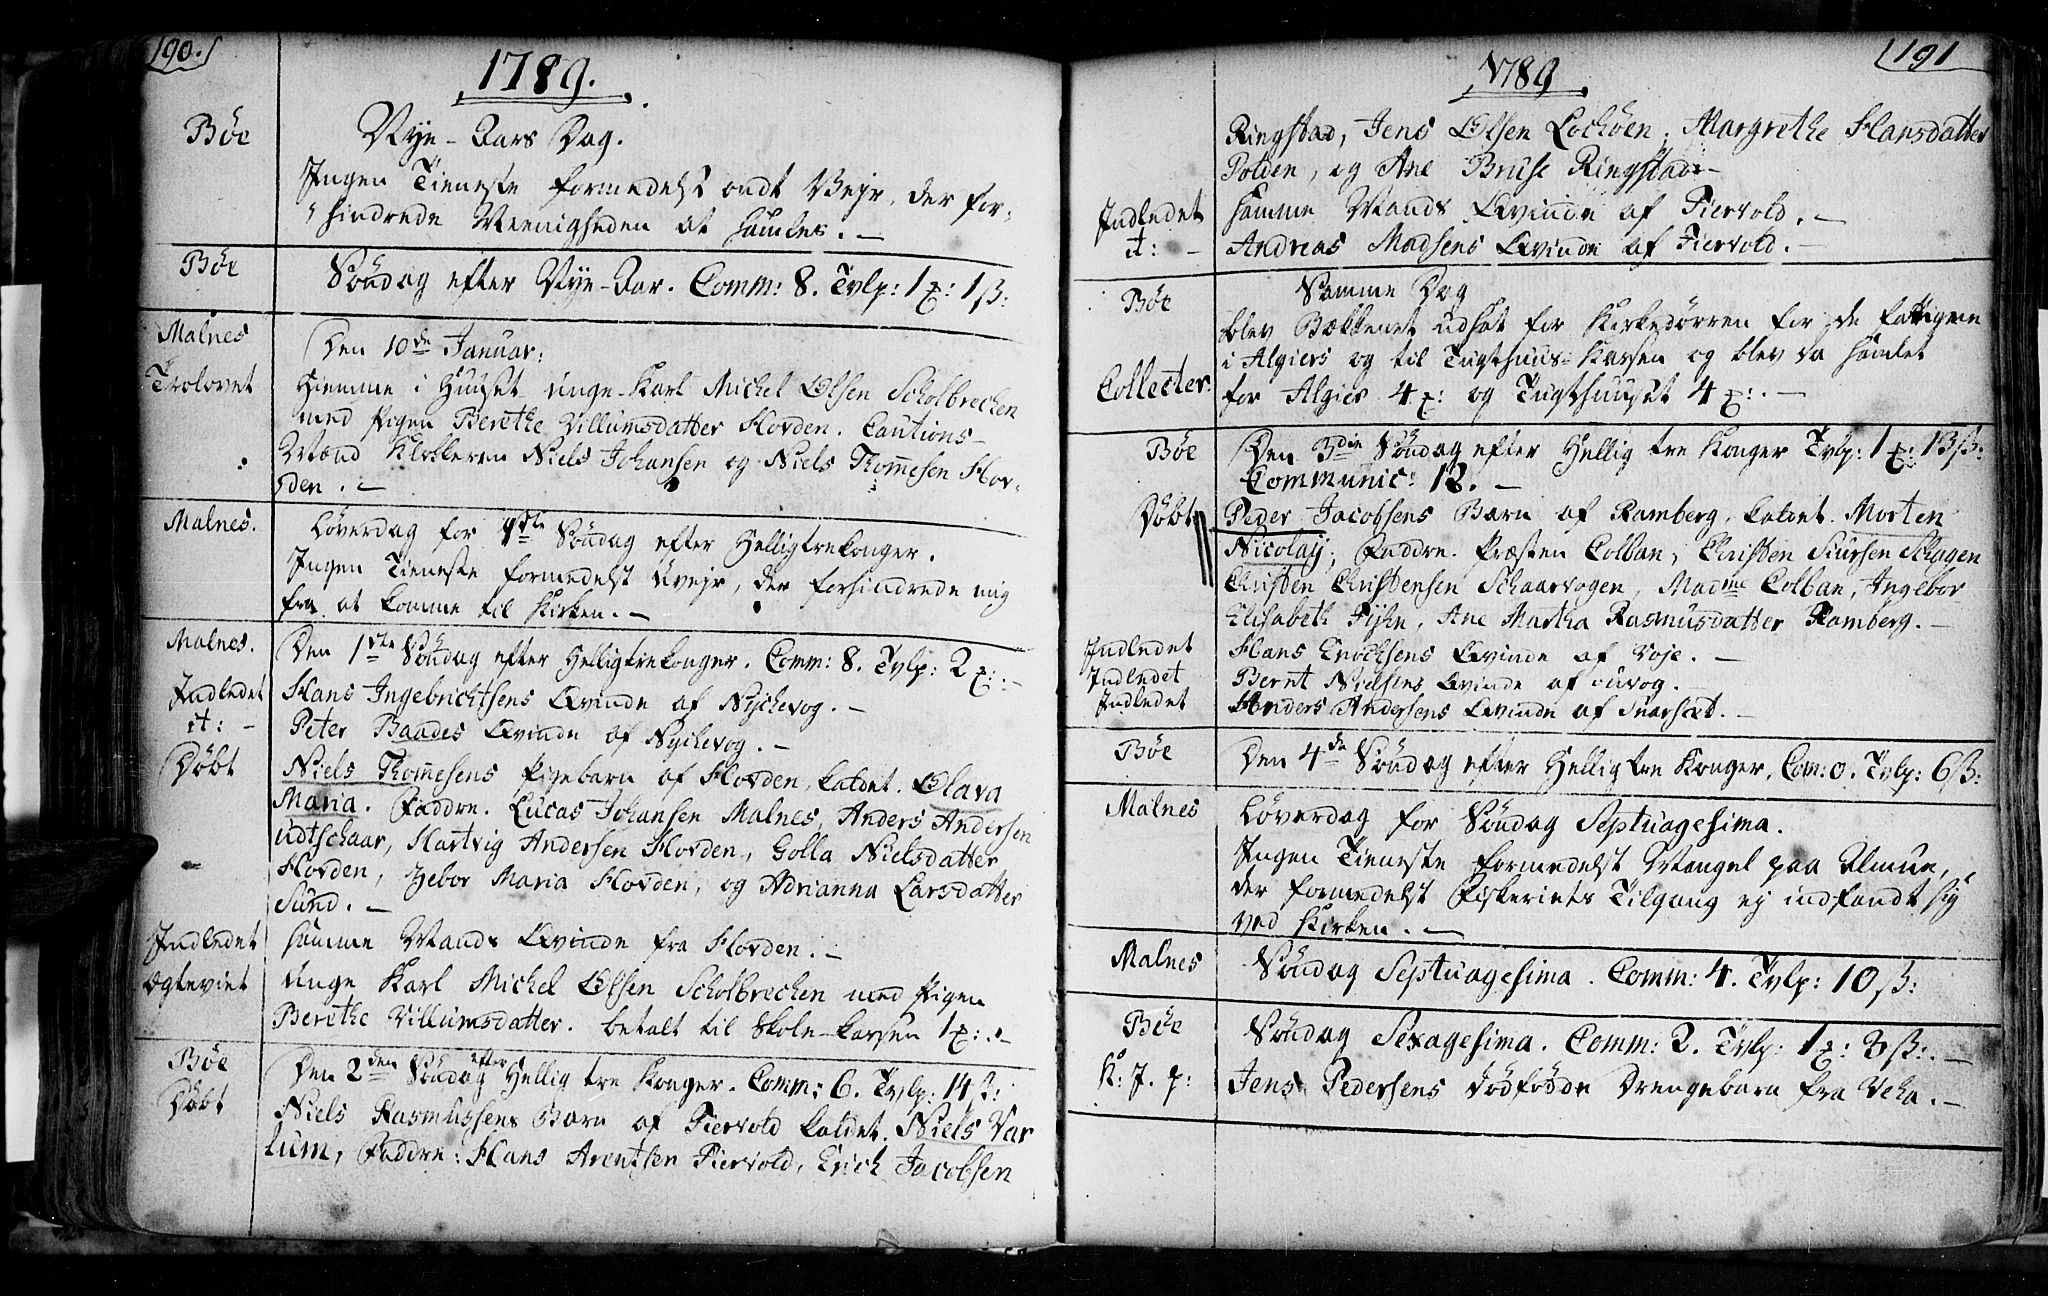 190.
1789.
Bøe
Nye-Aars Dag.
Ingen Tieneste formedelst ondt Vejr, der for-
hindrede Meenigheden at samles. -
Bøe
Søndag efter Nye-Aar. Comm: 8. Tvlp: 1 : 1 ß:
Malnes
Den 10de Januar:
Trolovet
Hiemme i Huuset unge Karl Michel Olsen Scholbrechen
med Pigen Berethe Villumsdatter Hovden. Cautions-
Mænd Klokkeren Niels Johansen og Niels Thomesen Hov-
den. -
Malnes.
Løverdag for 1ste Søndag efter Helligtrekonger.
Ingen Tieneste formedelst Uvejr, der forhindrede mig
fra at komme til Kirken. -
Malnes.
Den 1ste Søndag efter Helligtrekonger. Comm: 8. Tvlp: 2 : -
Indledet
Hans Ingebrichtsens Qvinde af Nychevog. -
it: -
Peter Baades Qvinde af Nychevog. -
Døbt
Niels Thomesens Pigebarn af Hovden, kaldet. Olava
Maria. Faddre. Lucas Johansen Malnes, Anders Andersen
udtschaar, Hartvig Andersen Hovden, Golla Nielsdatter
Hovden, Zebor Maria Hovden, og Adrianna Larsdatter
Sund. -
Indledet
samme Mands Qvinde fra Hovden. -
Ægteviet
Unge Karl Michel Olsen Scholbrechen med Pigen
Berethe Villumsdatter. betalt til Skole-Kassen 1 : -
Bøe
Den 2den Søndag efter Hellig tre Konger. Comm: 6. Tvlp: 14 ß:
Døbt
Niels Rasmussens Barn af Fiervold kaldet. Niels Var
lum, Faddre: Hans Arentsen Fiervold, Erich Jacobsen
191
1789
Ringstad, Jens Olsen Lochøen, Margrethe Hansdatter
Polden, og Ane Bruse Ringstad -
Indledet
samme Mands Qvinde af Fiervold. -
it: -
Andreas Madsens Qvinde af Fiervold. -
Bøe
Samme Dag
blev Bækkenet udsat for Kirkedørren for de fattige
i Algiers og til Tugthuus-Kassen og blev da samlet
Collecter.
for Algier 4 : og Tugthuuset 4 : -
Bøe
Den 3die Søndag efter Hellig tre Konger Tvlp: 1 : 13 ß:
Communic: 12. -
Døbt
Peder Jacobsens Barn af Ramberg, kaldet. Morten
Nicolaij; Faddre. Præsten Colban, Christen Siursen Schagen
Christen Christensen Schaarvogen, Madme Colban, Ingebor-
Elisabeth Fyhn, Ane Martha Rasmusdatter Ramberg. -
Indledet
Hans Enochsens Qvinde af Voje. -
Indledet
Bernt Nielsens Qvinde af uvog. -
Indledet
Anders Andersens Qvinde af Snarset. -
Bøe
Den 4de Søndag efter Hellig tre Konger, Com: 0. Tvlp: 6 ß:
Malnes
Løverdag for Søndag Septuagesima.
Ingen Tieneste formedelst Mangel paa Almue,
der formedelst Fiskeriets Tilgang ej indfandt sig
ved Kirken. -
Malnes
Søndag Septuagesima. Comm: 4. Tvlp: 10 ß:
Bøe
Søndag Sexagesima. Comm: 2. Tvlp: 1 : 3 ß: -
K: J. p:
Jens Pedersens Dødfødde Drengebarn fra Veha. -